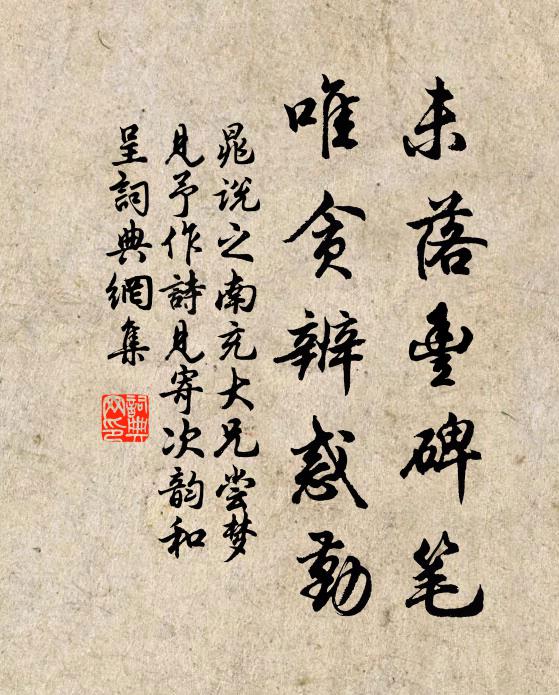 未落豊碑笔
唯贪辨惑勤
晁说之南充大兄尝梦
见予作詩见寄次韵和
呈詞典網集
詞典网印